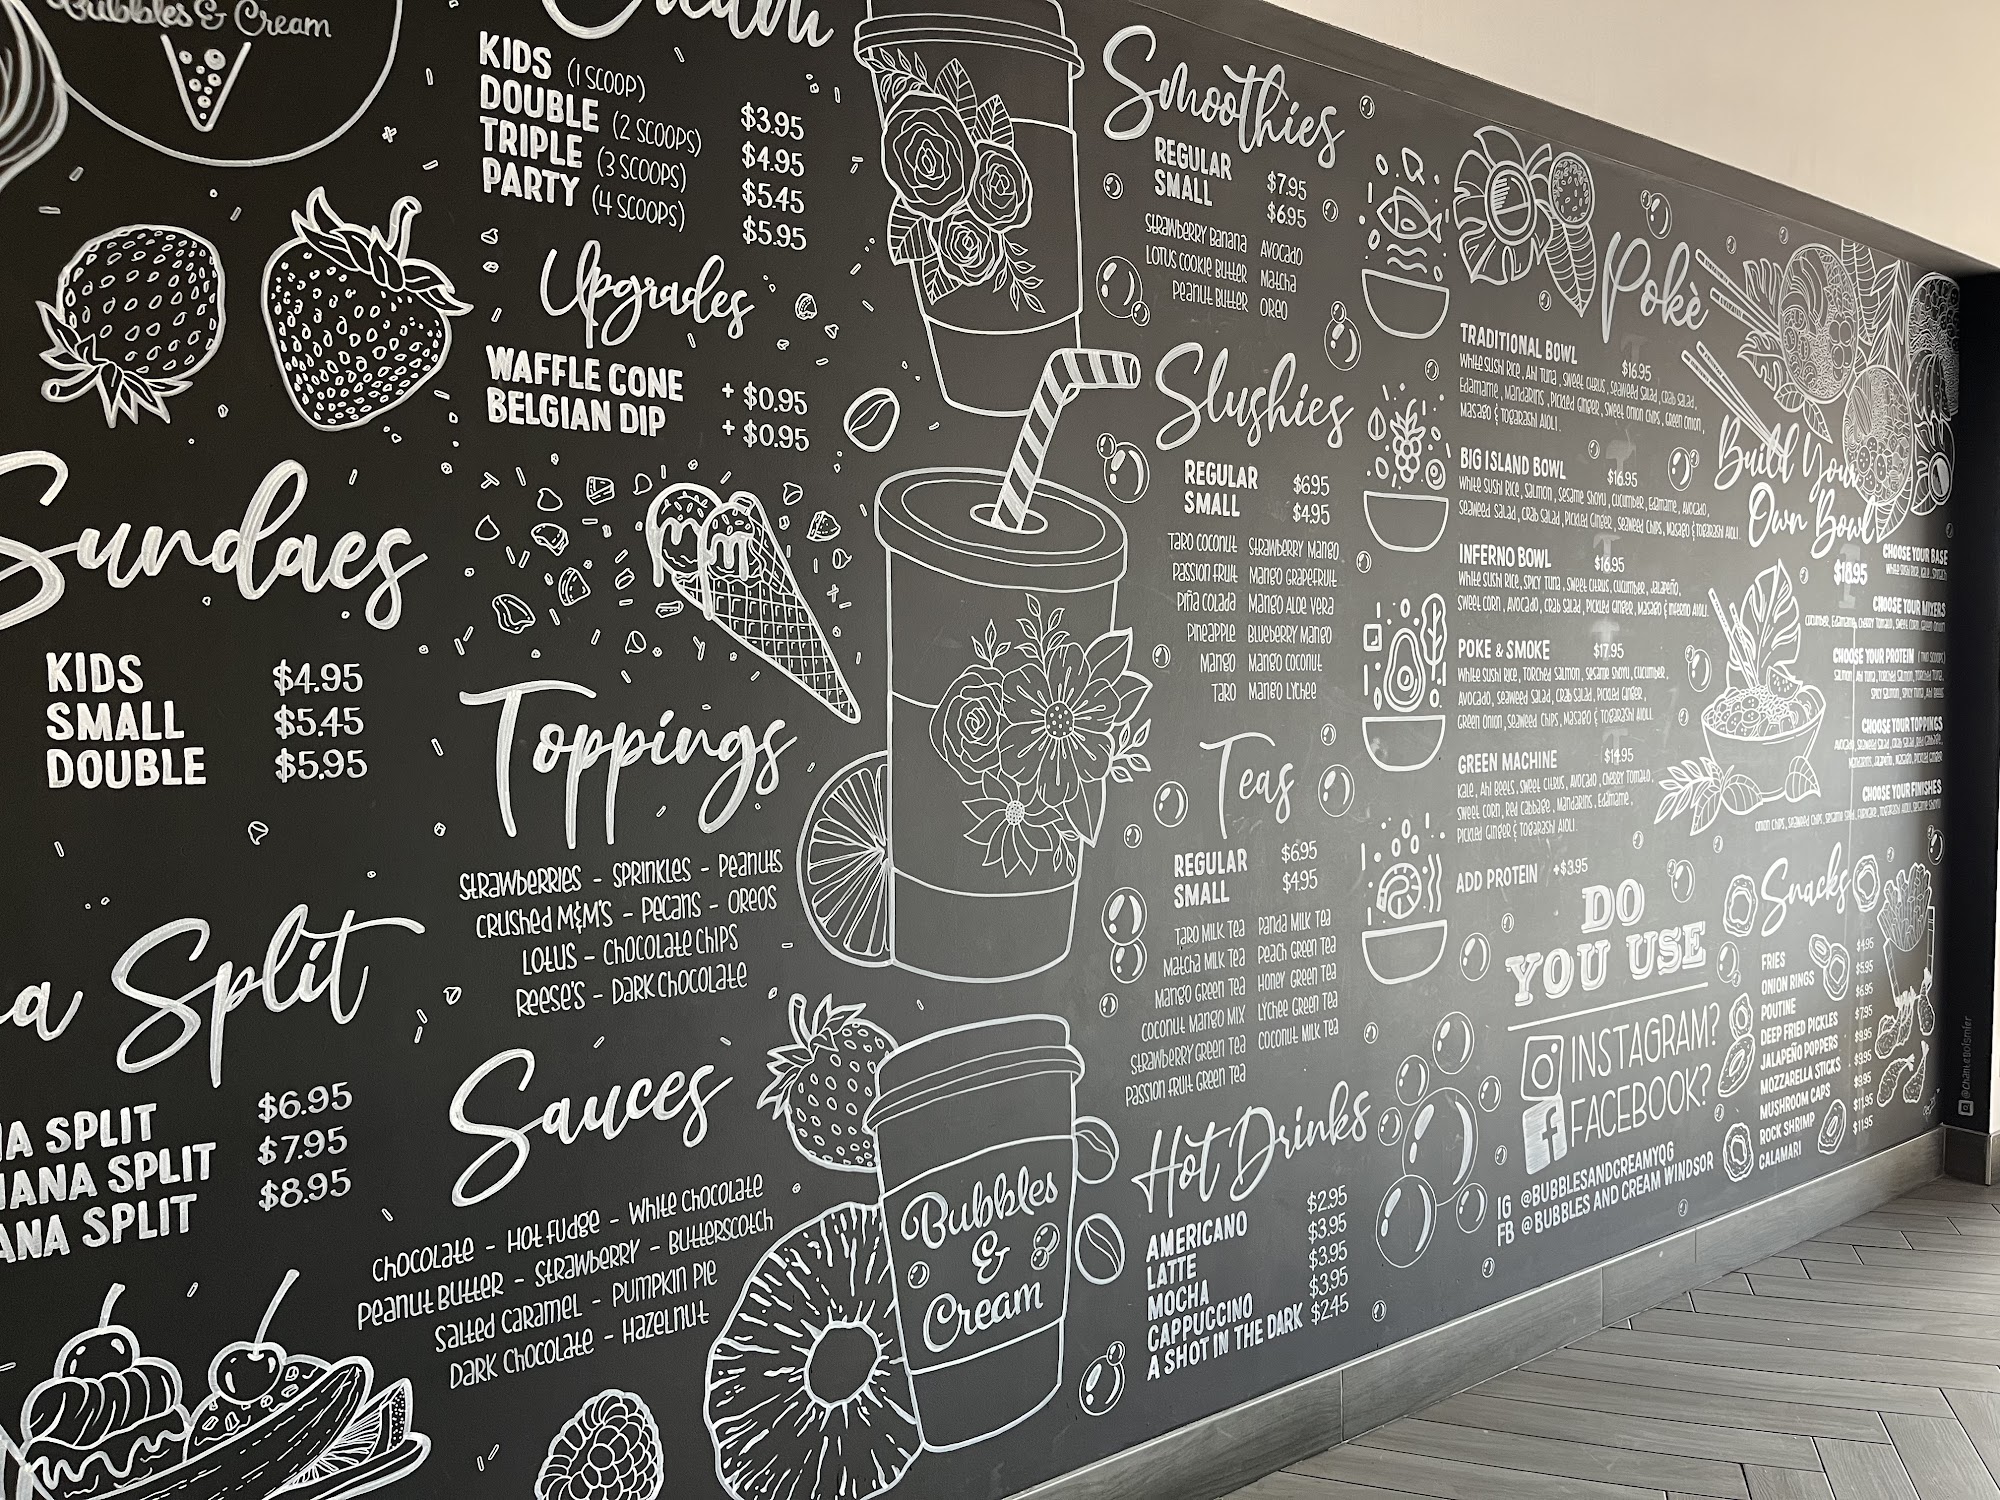 Bubbles & Cream
KIDS (1 SCOOP) $3.95
DOUBLE (2 SCOOPS) $4.95
TRIPLE (3 SCOOPS) $5.45
PARTY (4 SCOOPS) $5.95
Upgrades
WAFFLE CONE + $0.95
BELGIAN DIP + $0.95
Sundaes
KIDS $4.95
SMALL $5.45
DOUBLE $5.95
a Split
A SPLIT $6.95
NANA SPLIT $7.95
ANA SPLIT $8.95
Toppings
STRAWBERRIES - SPRINKLES - PEANUTS
CRUSHED M&M'S - PECANS - OREOS
LOTUS - CHOCOLATE CHIPS
REESE'S - DARK CHOCOLATE
Sauces
CHOCOLATE - HOT FUDGE - WHITE CHOCOLATE
PEANUT BUTTER - STRAWBERRY - BUTTERSCOTCH
SALTED CARAMEL - PUMPKIN PIE
DARK CHOCOLATE - HAZELNUT
Bubbles
&
Cream
Smoothies
REGULAR $7.95
SMALL $6.95
STRAWBERRY BANANA AVOCADO
LOTUS COOKIE BUTTER MATCHA
PEANUT BUTTER OREO
Slushies
REGULAR $6.95
SMALL $4.95
TARO COCONUT STRAWBERRY MANGO
PASSION FRUIT MANGO GRAPEFRUIT
PIÑA COLADA MANGO ALOE VERA
PINEAPPLE BLUEBERRY MANGO
MANGO MANGO COCONUT
TARO MANGO LYCHEE
Teas
REGULAR $6.95
SMALL $4.95
TARO MILK TEA PANDA MILK TEA
MATCHA MILK TEA PEACH GREEN TEA
MANGO GREEN TEA HONEY GREEN TEA
COCONUT MANGO MIX LYCHEE GREEN TEA
STRAWBERRY GREEN TEA COCONUT MILK TEA
PASSION FRUIT GREEN TEA
Hot Drinks
AMERICANO $2.95
LATTE $3.95
MOCHA $3.95
CAPPUCCINO $3.95
A SHOT IN THE DARK $2.45
Pokè
TRADITIONAL BOWL $16.95
WHITE SUSHI RICE, AHI TUNA, SWEET CITRUS, SEAWEED SALAD, CRAB SALAD,
EDAMAME, MANDARINS, PICKLED GINGER, SWEET ONION CHIPS, GREEN ONION,
MASAGO & TOGARASHI AIOLI.
BIG ISLAND BOWL $16.95
WHITE SUSHI RICE, SALMON, SESAME SHOYU, CUCUMBER, EDAMAME, AVOCADO,
SEAWEED SALAD, CRAB SALAD, PICKLED GINGER, SEAWEED CHIPS, MASAGO & TOGARASHI AIOLI.
INFERNO BOWL $16.95
WHITE SUSHI RICE, SPICY TUNA, SWEET CITRUS, CUCUMBER, JALAPEÑO,
SWEET CORN, AVOCADO, CRAB SALAD, PICKLED GINGER, MASAGO & INFERNO AIOLI.
POKE & SMOKE $17.95
WHITE SUSHI RICE, TORCHED SALMON, SESAME SHOYU, CUCUMBER,
AVOCADO, SEAWEED SALAD, CRAB SALAD, PICKLED GINGER,
GREEN ONION, SEAWEED CHIPS, MASAGO & TOGARASHI AIOLI.
GREEN MACHINE $14.95
KALE, AHI BEETS, SWEET CITRUS, AVOCADO, CHERRY TOMATO,
SWEET CORN, RED CABBAGE, MANDARINS, EDAMAME,
PICKLED GINGER & TOGARASHI AIOLI.
ADD PROTEIN +$3.95
Build Your
Own Bowl
$16.95
CHOOSE YOUR BASE
WHITE SUSHI RICE, KALE, SPINACH
CHOOSE YOUR MIXERS
CUCUMBER, EDAMAME, CHERRY TOMATO, SWEET CORN, GREEN ONION
CHOOSE YOUR PROTEIN (TWO SCOOPS)
SALMON, AHI TUNA, TORCHED SALMON, TORCHED TUNA,
SPICY SALMON, SPICY TUNA, AHI BEETS
CHOOSE YOUR TOPPINGS
AVOCADO, SEAWEED SALAD, CRAB SALAD, RED CABBAGE,
MANDARINS, JALAPEÑO, MASAGO, PICKLED GINGER
CHOOSE YOUR FINISHES
ONION CHIPS, SEAWEED CHIPS, SESAME SEED, FURIKAKE, TOGARASHI AIOLI, SESAME SHOYU
DO
YOU USE
INSTAGRAM?
FACEBOOK?
IG @BUBBLESANDCREAMYQG
FB @BUBBLES AND CREAM WINDSOR
Snacks
FRIES $4.95
ONION RINGS $5.95
POUTINE $6.95
DEEP FRIED PICKLES $7.95
JALAPEÑO POPPERS $9.95
MOZZARELLA STICKS $9.95
MUSHROOM CAPS $9.95
ROCK SHRIMP $11.95
CALAMARI $11.95